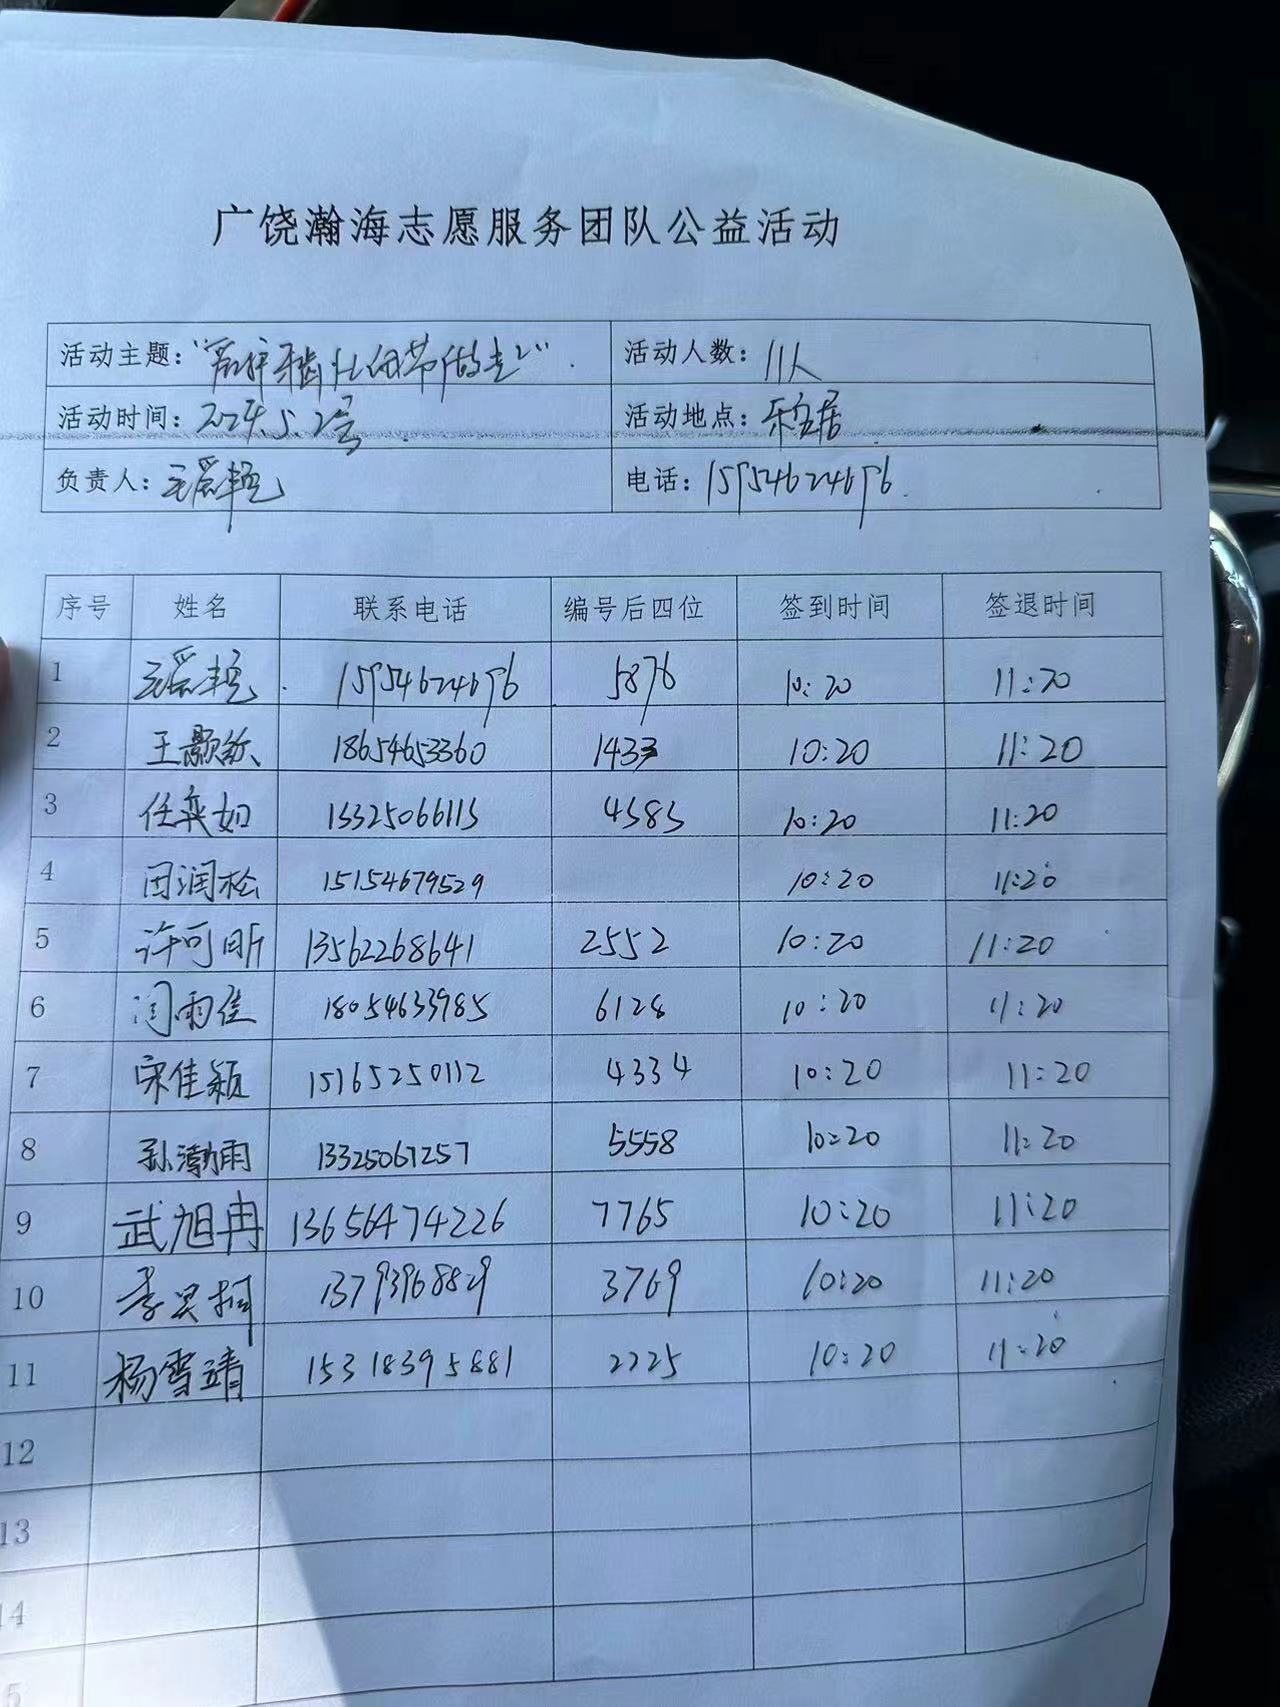 广饶瀚海志愿服务团队公益活动
活动主题: 活动人数: 11人
活动时间: 2024.5.2号 活动地点:
负责人: 电话: 15954624696
序号 姓名 联系电话 编号后四位 签到时间 签退时间
1 15954624696 5876 10:20 11:20
2 王颢 18654653360 1433 10:20 11:20
3 任奕如 13325066113 4583 10:20 11:20
4 田润松 15154679529 10:20 11:20
5 许可昕 13562268641 2552 10:20 11:20
6 闫雨佳 18054633985 6128 10:20 11:20
7 宋佳颖 15165250112 4334 10:20 11:20
8 孙渤雨 13325067257 5558 10:20 11:20
9 武旭冉 13656474226 7765 10:20 11:20
10 李昊 13793968829 3769 10:20 11:20
11 杨雪靖 15318395881 2225 10:20 11:20
12
13
14